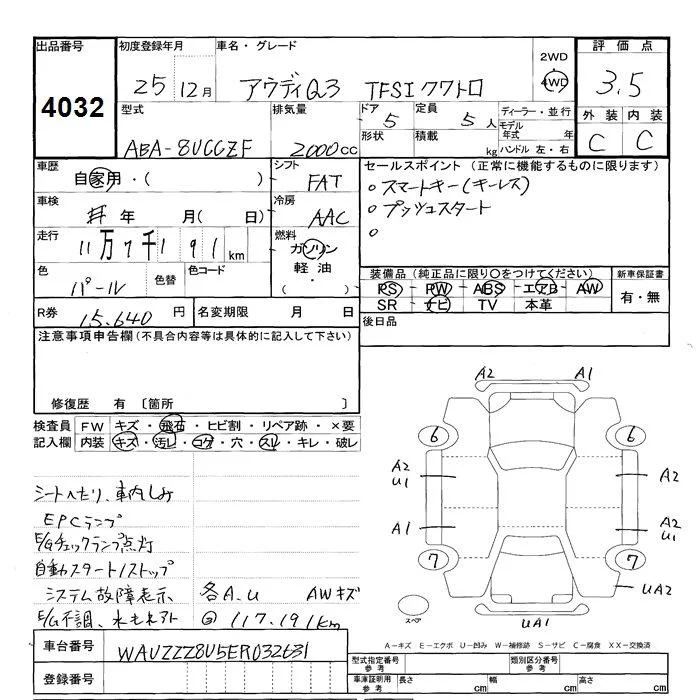 出品番号 4032
初度登録年月 25 12月
車名・グレード アウディQ3 TFSIクワトロ
2WD
4WD
評価点 3.5
外装 内装
C C
型式 ABA-8UCCZF
排気量 2000cc
ドア 5
形状
定員 5人
積載 kg
ディーラー・並行
モデル年式 年
ハンドル 左・右
車歴 自家用・( )
シフト FAT
車検 年 月( 日)
冷房 AAC
走行 11万7千191km
燃料 ガソリン
軽油
・( )
色 パール
色替
色コード
セールスポイント (正常に機能するものに限る)
○スマートキー(キーレス)
○プッシュスタート
○
装備品 (純正品に限り○をつけてください)
PS・PW・ABS・エアB・AW
SR・ナビ・TV・本革
新車保証書
有・無
R券 15,640円
名変期限 月 日
後日品
注意事項申告欄 (不具合内容等は具体的に記入して下さい)
修復歴 有 〔箇所 〕
検査員 FW キズ・飛石・ヒビ割・リペア跡・×要
記入欄 内装 キズ・汚レ・コゲ・穴・スレ・キレ・破レ
シートヘたり、車内しみ
EPCランプ
E/Gチェックランプ点灯
自動スタート/ストップ
システム故障表示 各A.U AWキズ
E/G不調、水モレアト 117.191km
A2 A1
6 6
A2
U1 A2
A1 A2
U1
7 7
UA2
スペア UA1
A-キズ E-エクボ U-凹み W-補修跡 S-サビ C-腐食 XX-交換済
車台番号 WAUZZZ8U5ER032631
登録番号
型式指定番号 参考
類別区分番号 参考
車庫証明用 参考 長さ cm 幅 cm 高さ cm